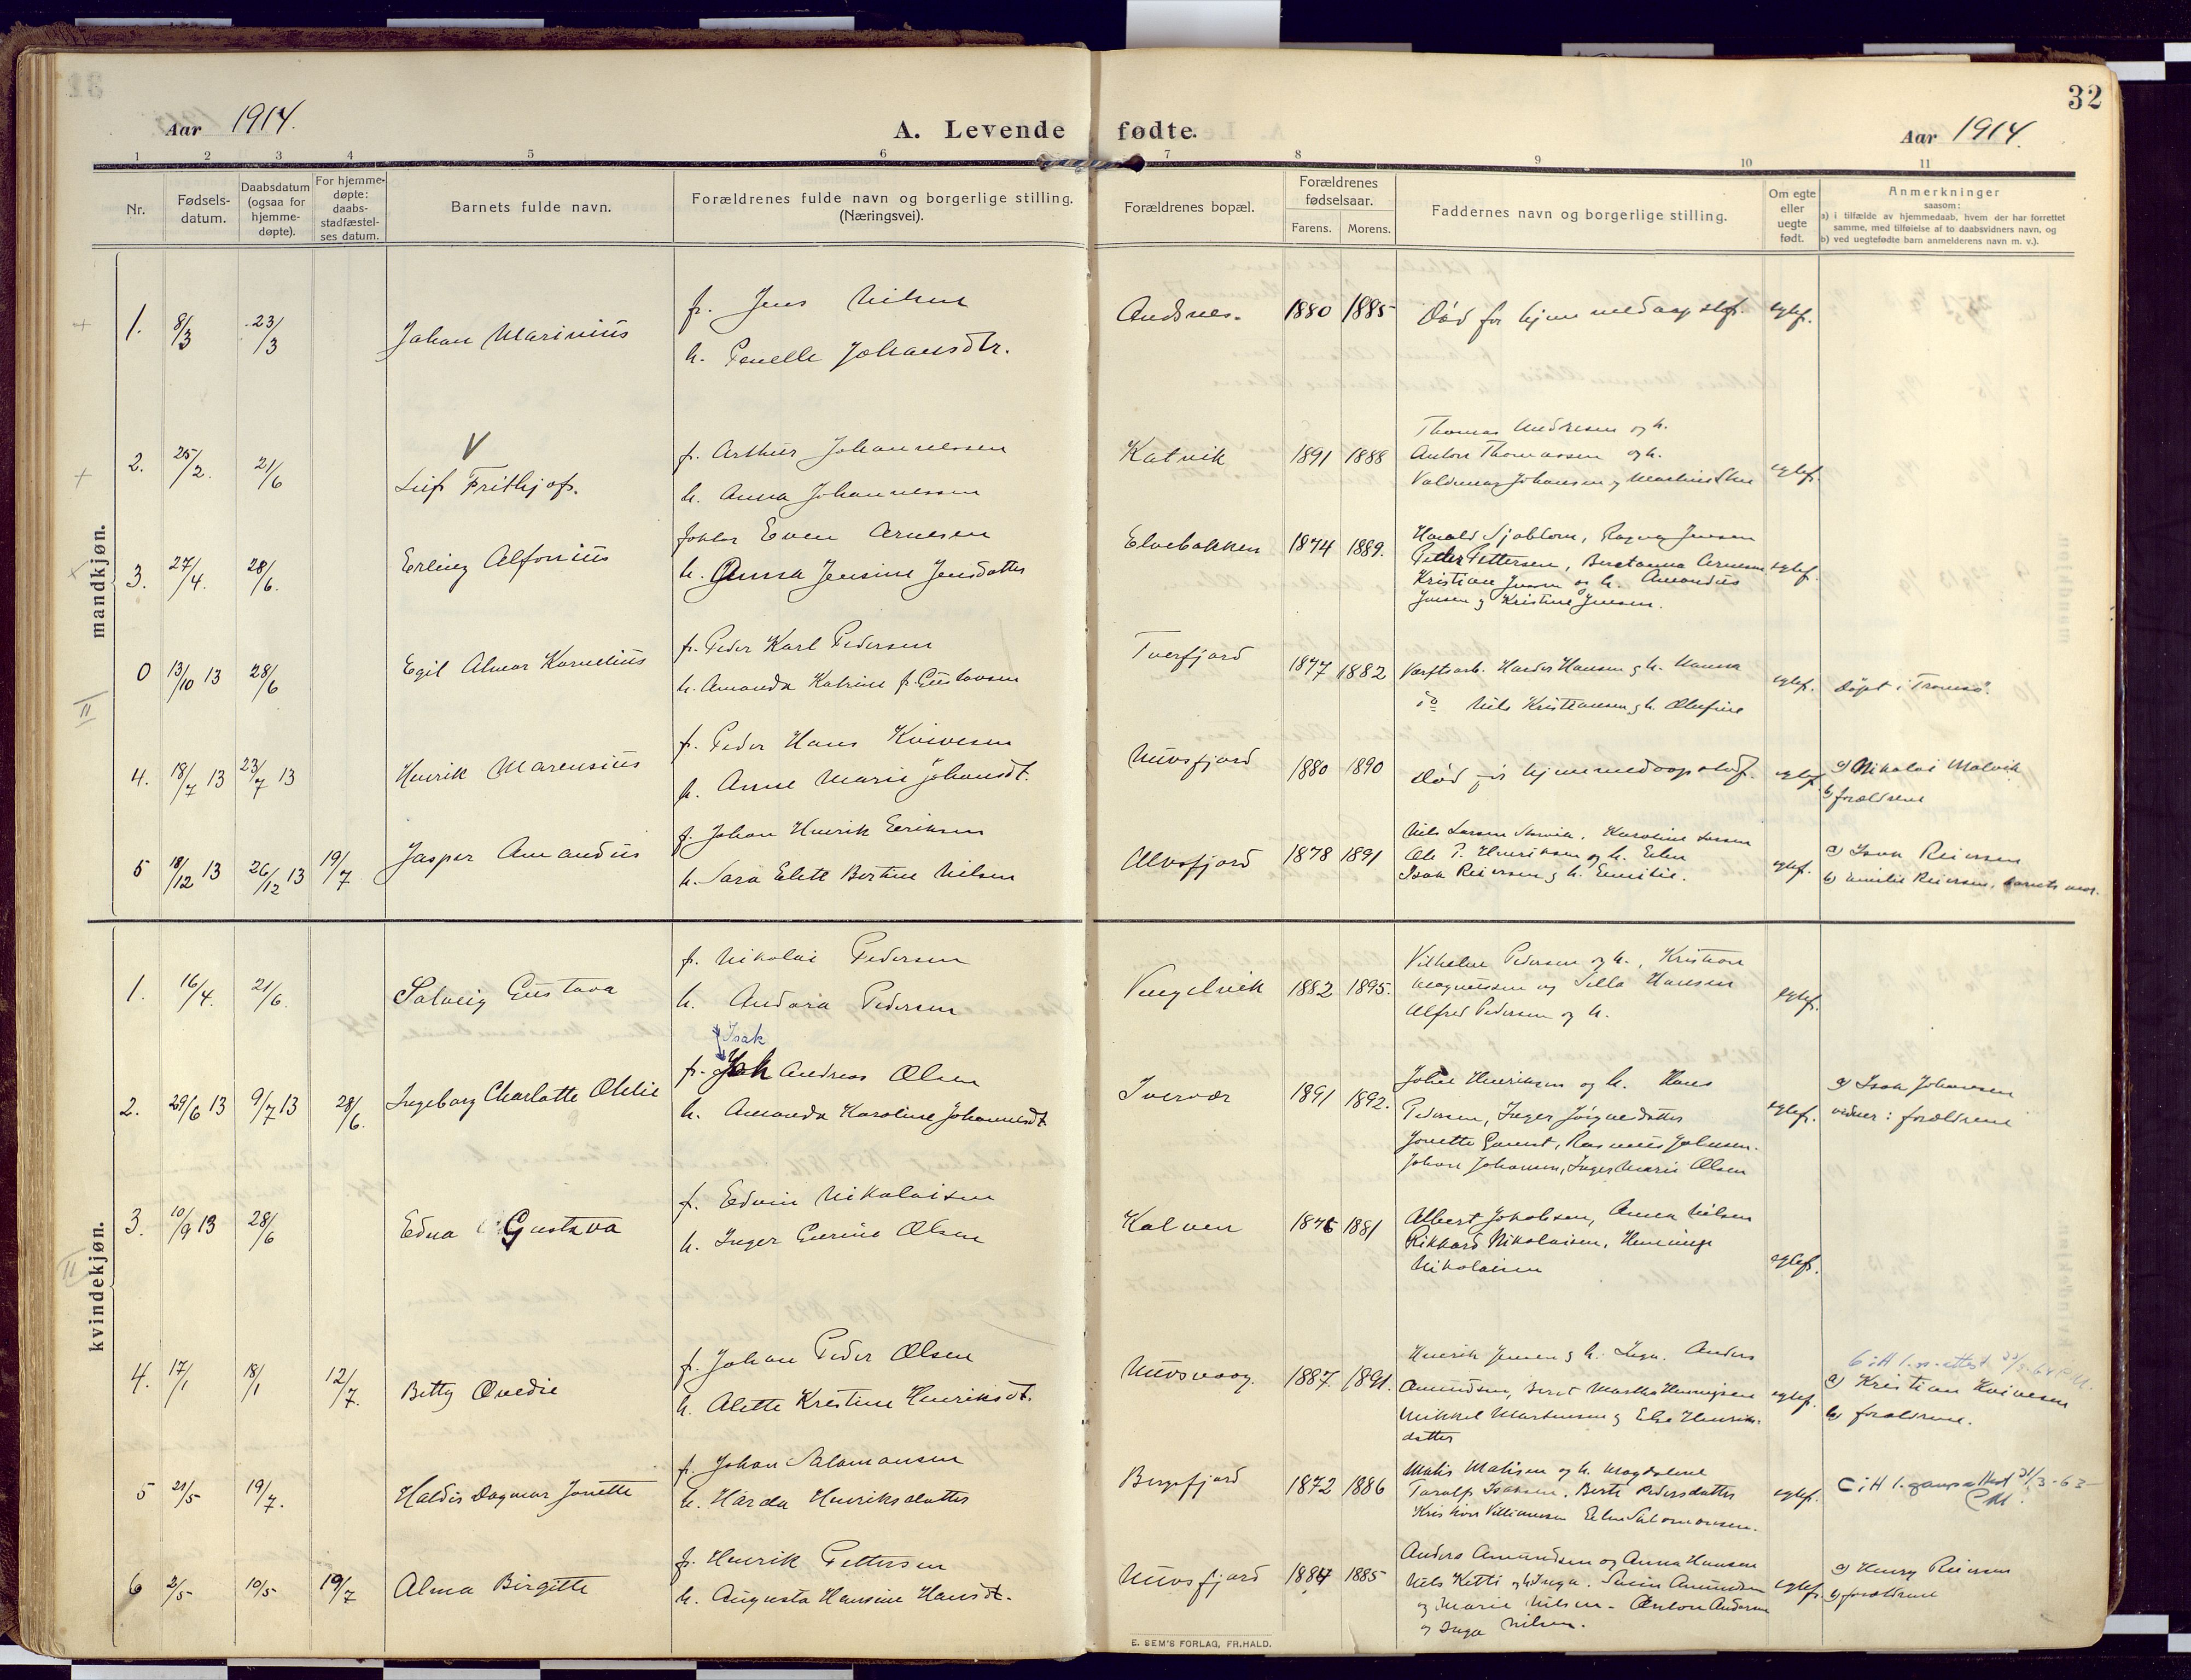 32
Aar 1914.
A. Levende fødte.
Aar 1914.
1 2 3 4 5 6 7 8 9 10 11
Nr.
Fødsels-
datum.
Daabsdatum
(ogsaa for
hjemme-
døpte).
For hjemme-
døpte:
daabs-
stadfæstel-
ses datum.
Barnets fulde navn.
Forældrenes fulde navn og borgerlige stilling.
(Næringsvei).
Forældrenes bopæl.
Forældrenes
fødselsaar.
Farens. Morens.
Faddernes navn og borgerlige stilling.
Om egte
eller
uegte
født.
Anmerkninger
saasom:
a) i tilfælde av hjemmedaab, hvem der har forrettet
samme, med tilføielse af to daabsvidners navn, og
b) ved uegtefødte barn anmelderens navn m. v.).
mandkjøn.
1. 8/3 23/3 Johan Marinius
f. Jens Nilsen
h. Penelle Johansdtr.
Andsnes. 1880 1885 Død før hjemmedaap stf. egtef.
2. 25/2. 21/6 Leif Frithjof.
f. Arthur Johannessen
h. Anna Johannessen
Katvik 1891 1888
Thomas Andresen og h.
Anton Thomassen og h.
Valdemar Johansen og
egtef.
3. 27/4. 28/6. Erling Alfonius
Even Arnesen
h. Anna Jensine Jensdatter
Elvebakken 1874 1889.
Harald Sjøblom, Ragna Jensen
Petter Pettersen, Arnesen
Kristian Jensen og h. Amandus
Jensen og Kristine Jensen.
egtef.
0 13/10 13 28/6 Egil Almar Kornelius
f. Peder Karl Pedersen
h. Amanda Katrine f. Gustavsen
Tverfjord 1877 1882
Værftsarb. Harder Hansen og h. Hanna
do Nils Kristiansen og h. Olufine
egtef. døpt i Tromsø.
4. 18/7 13 23/7 13 Henrik Marensius
f. Peder Hans Kvivesen
h. Anne Marie Johansdt.
Nuvsfjord 1880 1890 Død før hjemmedaap stadf. egtef.
a) Nikolai Malvik
b) forældrene
5 18/12 13 26/12 13 19/7 Jasper Amandus
f. Johan Henrik Eriksen
h. Sara Elett Bertine Nilsen
Ulvsfjord 1878 1891
Nils Larsen Karoline Larsen
Ole P. Henriksen og h. Elen
Isak Reiersen og h. Emilie.
egtef.
a) Isak Reiersen
b) Emilie Reiersen, barnets mor.
kvindekjøn.
1. 16/4. 21/6. Solveig Gustava
f. Nikolai Pedersen
h. Andora Pedersen
Vengelvik 1882 1895.
Vilhelm Pedersen og h., Kristian
Magnussen og Silla Hansen
Alfred Pedersen og h.
egtef.
2. 29/6 13 9/7 13 28/6. Ingeborg Charlotte Othlie
Isak
f. Isak Andreas Olsen
h. Amanda Karoline Johannesdt.
Iververe 1891 1892.
Johan Henriksen og h. Hans
Pedersen, Inger Jørginedatter
Jonette Rasmus Johnsen.
Johan Johansen, Inger Marie Olsen
egtef.
a) Isak Johansen
vidner: forældrene
3. 10/9 13 28/6 Edna Gustava
f. Edvin Nikolaisen
h. Inger Eurine Olsen
Kalven 1876 1881
Albert Jakobsen, Anna Nilsen
Rikkard Nikolaisen, Henninge
Nikolaisen
egtef.
4. 17/1 18/1 12/7. Betty Ovedie
f. Johan Peder Olsen
h. Alette Kristine Henriksdt.
Nuvsvaag. 1887. 1891.
Henrik Jensen og h. Inga. Anders
Amundsen, Martha Henningsen
Mikkel Martinsen og Else Henriks-
datter
egtef.
a) Kristian Kvivesen
b) forældrene.
5 21/5 19/7. Haldis Dagmar Jonette
f. Johan Salamonsen
h. Harda Henriksdatter
Bergsfjord 1872 1886
Matis Matisen og h. Magdalene
Toralf Isaksen. Berit Pedersdatter
Kristian Villiamsen Elen Salomonsen.
egtef. 21/3-63
6 2/5 10/5 19/7 Alma Birgitte
f. Henrik Pettersen
h. Augusta Hansine Hansdt.
Nuvsfjord 1884 1885
Anders Amundsen og Anna Hansen
Nils Ketti og h. Inga. Amundsen
og Marie Nilsen - Anton Andersen
og Inga Nilsen.
egtef.
a) Henry Reiersen
b) forældrene
E. SEM'S FORLAG, FR.HALD.